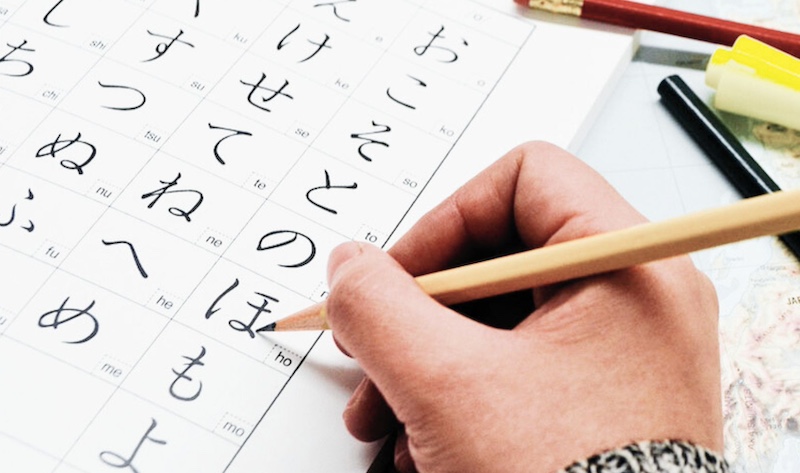 え e お o
ku け ke こ ko
し shi す su せ se そ so
ち chi つ tsu て te と to
ぬ nu ね ne の
ふ fu へ he ほ ho
め me も mo
よ